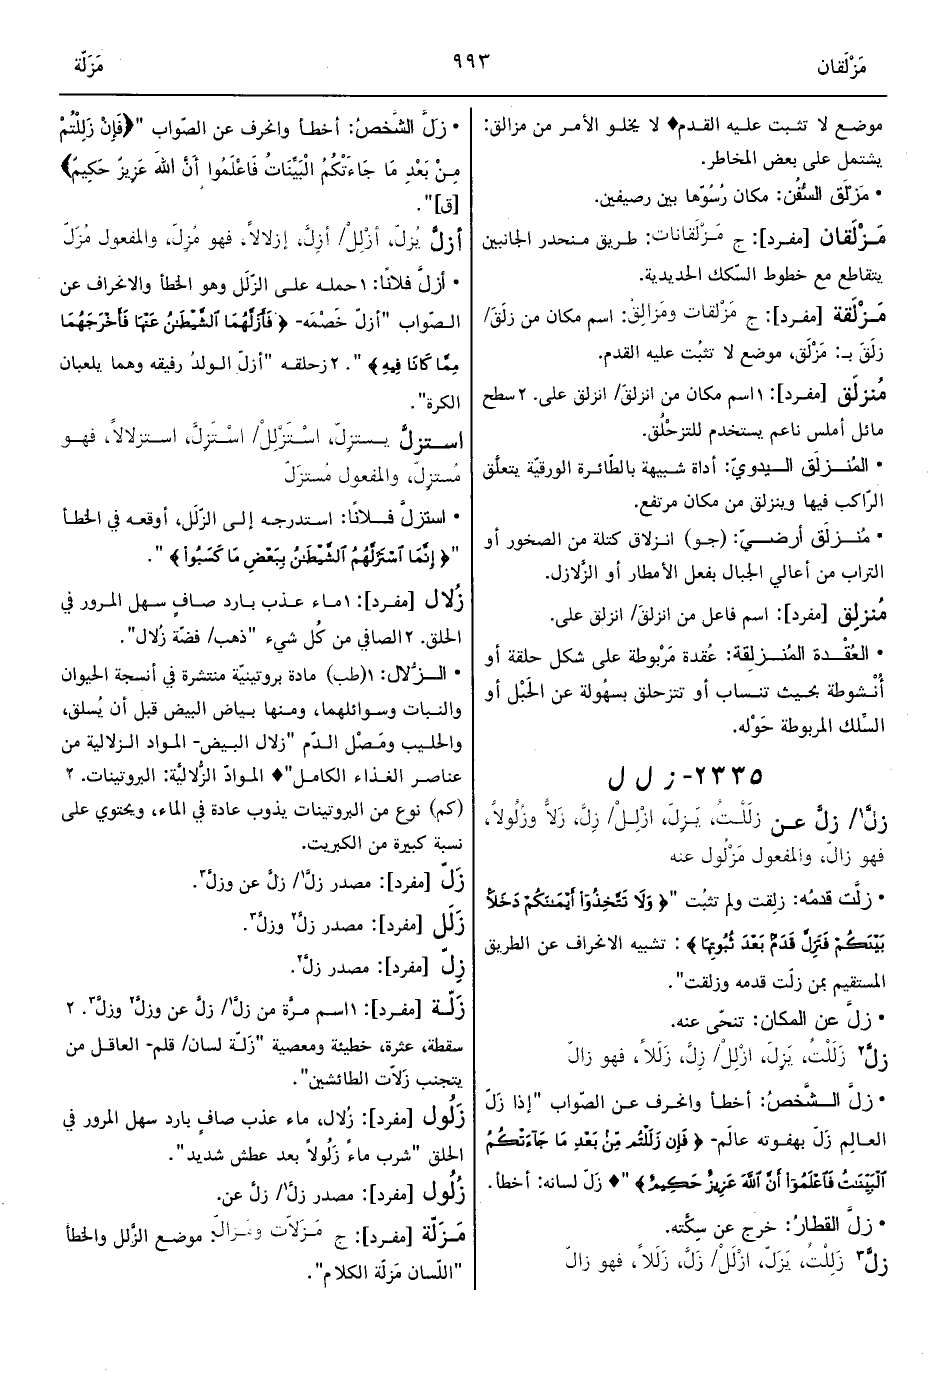 مَزْلَقان
٩٩٣
مَزَلّة
موضع لا تثبت عليه القدم♦ لا يخلو الأمر من مزالق:
يشتمل على بعض المخاطر.
• مَزلَق السُّفُن: مكان رُسُوّها بين رصيفين.
مَـزْلَقان [مفرد]: ج مَـزْلَقانات: طريق منحدر الجانبين
يتقاطع مع خطوط السّكك الحديدية.
مَـزْلَقة [مفرد]: ج مَزْلَقات ومَزالِقُ: اسم مكان من زلَقَ/
زلَقَ بـ: مَزْلَق، موضع لا تثبُت عليه القدم.
مُنزلَق [مفـرد]: ١اسم مكان من انزلقَ/ انزلق على. ٢سطح
مائل أملس ناعم يستخدم للتزحلُق.
• المُنـزلَق الـيدويّ: أداة شبيهة بالطّائرة الورقيّة يتعلّق
الرّاكب فيها وينزلق من مكان مرتفع.
• مُنـزلَق أرضـيّ: (جو) انـزلاق كتلة من الصخور أو
التراب من أعالي الجبال بفعل الأمطار أو الزَّلازل.
مُنزلِق [مفرد]: اسم فاعل من انزلقَ/ انزلق على.
• العُقْـدة المُنـزلقة: عُقدة مَرْبوطة على شكل حلقة أو
أُنْشوطة بحيث تنساب أو تتزحلق بسهُولة عن الحَبْل أو
السِّلك المربوطة حَوْله.
٢٣٣٥- ز ل ل
زلَّ١/ زلَّ عـن زلَلْـتُ، يَـزِلّ، ازْلِـلْ/ زِلَّ، زَلاًّ وزُلُولاً،
فهو زالّ، والمفعول مَزْلُول عنه
• زلَّت قدمُه: زلِقت ولم تثبُت "﴿ وَلَا تَتَّخِذُوٓاْ أَيْمَٰنَكُمْ دَخَلَۢا
بَيْنَكُمْ فَتَزِلَّ قَدَمُۢ بَعْدَ ثُبُوتِهَا ﴾ : تشبيه الانحراف عن الطريق
المستقيم بمن زلّت قدمه وزلقت".
• زلَّ عن المكان: تنحّى عنه.
زلَّ٢ زَلَلْتُ، يَزِلّ، ازْلِلْ/ زِلَّ، زَلَلاً، فهو زالّ
• زلَّ الـشَّخصُ: أخطأ وانحرف عـن الصّواب "إذا زَلّ
العـالِم زَلّ بهفوته عالَم- ﴿ فَإِن زَلَلْتُم مِّنۢ بَعْدِ مَا جَآءَتْكُمُ
ٱلْبَيِّنَٰتُ فَٱعْلَمُوٓاْ أَنَّ ٱللَّهَ عَزِيزٌ حَكِيمٌ ﴾ "♦ زَلّ لسانه: أخطأ.
• زلَّ القطارُ: خرج عن سِكَّته.
زلَّ٣ زَلِلْتُ، يَزَلّ، ازْلَلْ/ زَلَّ، زَلَلاً، فهو زالّ
• زلَّ الشَّخصُ: أخطأ وانحرف عن الصّواب "﴿فَإِنْ زَلِلْتُمْ
مِـنْ بَعْدِ مَا جَاءَتْكُمُ الْبَيِّنَاتُ فَاعْلَمُوا أَنَّ اللهَ عَزِيزٌ حَكِيمٌ﴾
[ق]".
أزلَّ يُزلّ، أزْلِلْ/ أزِلَّ، إزلالاً، فهو مُزِلّ، والمفعول مُزَلّ
• أزلّ فلانًا: ١حمله على الزّلَل وهو الخطأ والانحراف عن
الصّواب "أزلّ خَصْمَه- ﴿ فَأَزَلَّهُمَا ٱلشَّيْطَٰنُ عَنْهَا فَأَخْرَجَهُمَا
مِمَّا كَانَا فِيهِ ﴾ ". ٢ زحلقه "أزلّ الـولدُ رفيقه وهما يلعبان
الكرة".
استزلَّ يـستزِلّ، اسْـتَزْلِلْ/ اسْـتَزِلَّ، استزلالاً، فهـو
مُستزِلّ، والمفعول مُستزَلّ
• استزلَّ فـلانًا: استدرجه إلى الزّلَل، أوقعه في الخطأ
"﴿ إِنَّمَا ٱسْتَزَلَّهُمُ ٱلشَّيْطَٰنُ بِبَعْضِ مَا كَسَبُواْ ﴾ ".
زُلال [مفـرد]: ١مـاء عـذب بارد صـافٍ سهل المرور في
الحلق. ٢الصافي من كُل شيء "ذهب/ فضّة زُلال".
• الـزُّلال: ١(طب) مادة بروتينيّة منتشرة في أنسجة الحيوان
والنبات وسوائلهما، ومنها بياض البيض قبل أن يُسلق،
والحليب ومَصْل الدّم "زلال البيض- المواد الزلالية من
عناصر الغذاء الكامل"♦ الموادّ الزُّلاليَّة: البروتينات. ٢
(كم) نوع من البروتينات يذوب عادة في الماء، ويحتوي على
نسبة كبيرة من الكبريت.
زَلّ [مفرد]: مصدر زلَّ١/ زلَّ عن وزلَّ٣.
زَلَل [مفرد]: مصدر زلَّ٢ وزلَّ٣.
زِلّ [مفرد]: مصدر زلَّ٢.
زَلّـة [مفـرد]: ١اسـم مـرَّة من زلَّ١/ زلَّ عن وزلَّ٢ وزلَّ٣. ٢
سقطة، عثرة، خطيئة ومعصية "زَلـة لسان/ قلم- العاقل من
يتجنب زَلاّت الطائشين".
زَلُول [مفرد]: زُلال، ماء عذب صافٍ بارد سهل المرور في
الحلق "شرب ماءً زَلُولاً بعد عطش شديد".
زُلُول [مفرد]: مصدر زلَّ١/ زلَّ عن.
مَـزلّة [مفـرد]: ج مَـزلاّت ومَـزالّ: موضع الزّلل والخطأ
"اللّسان مَزلّة الكلام".